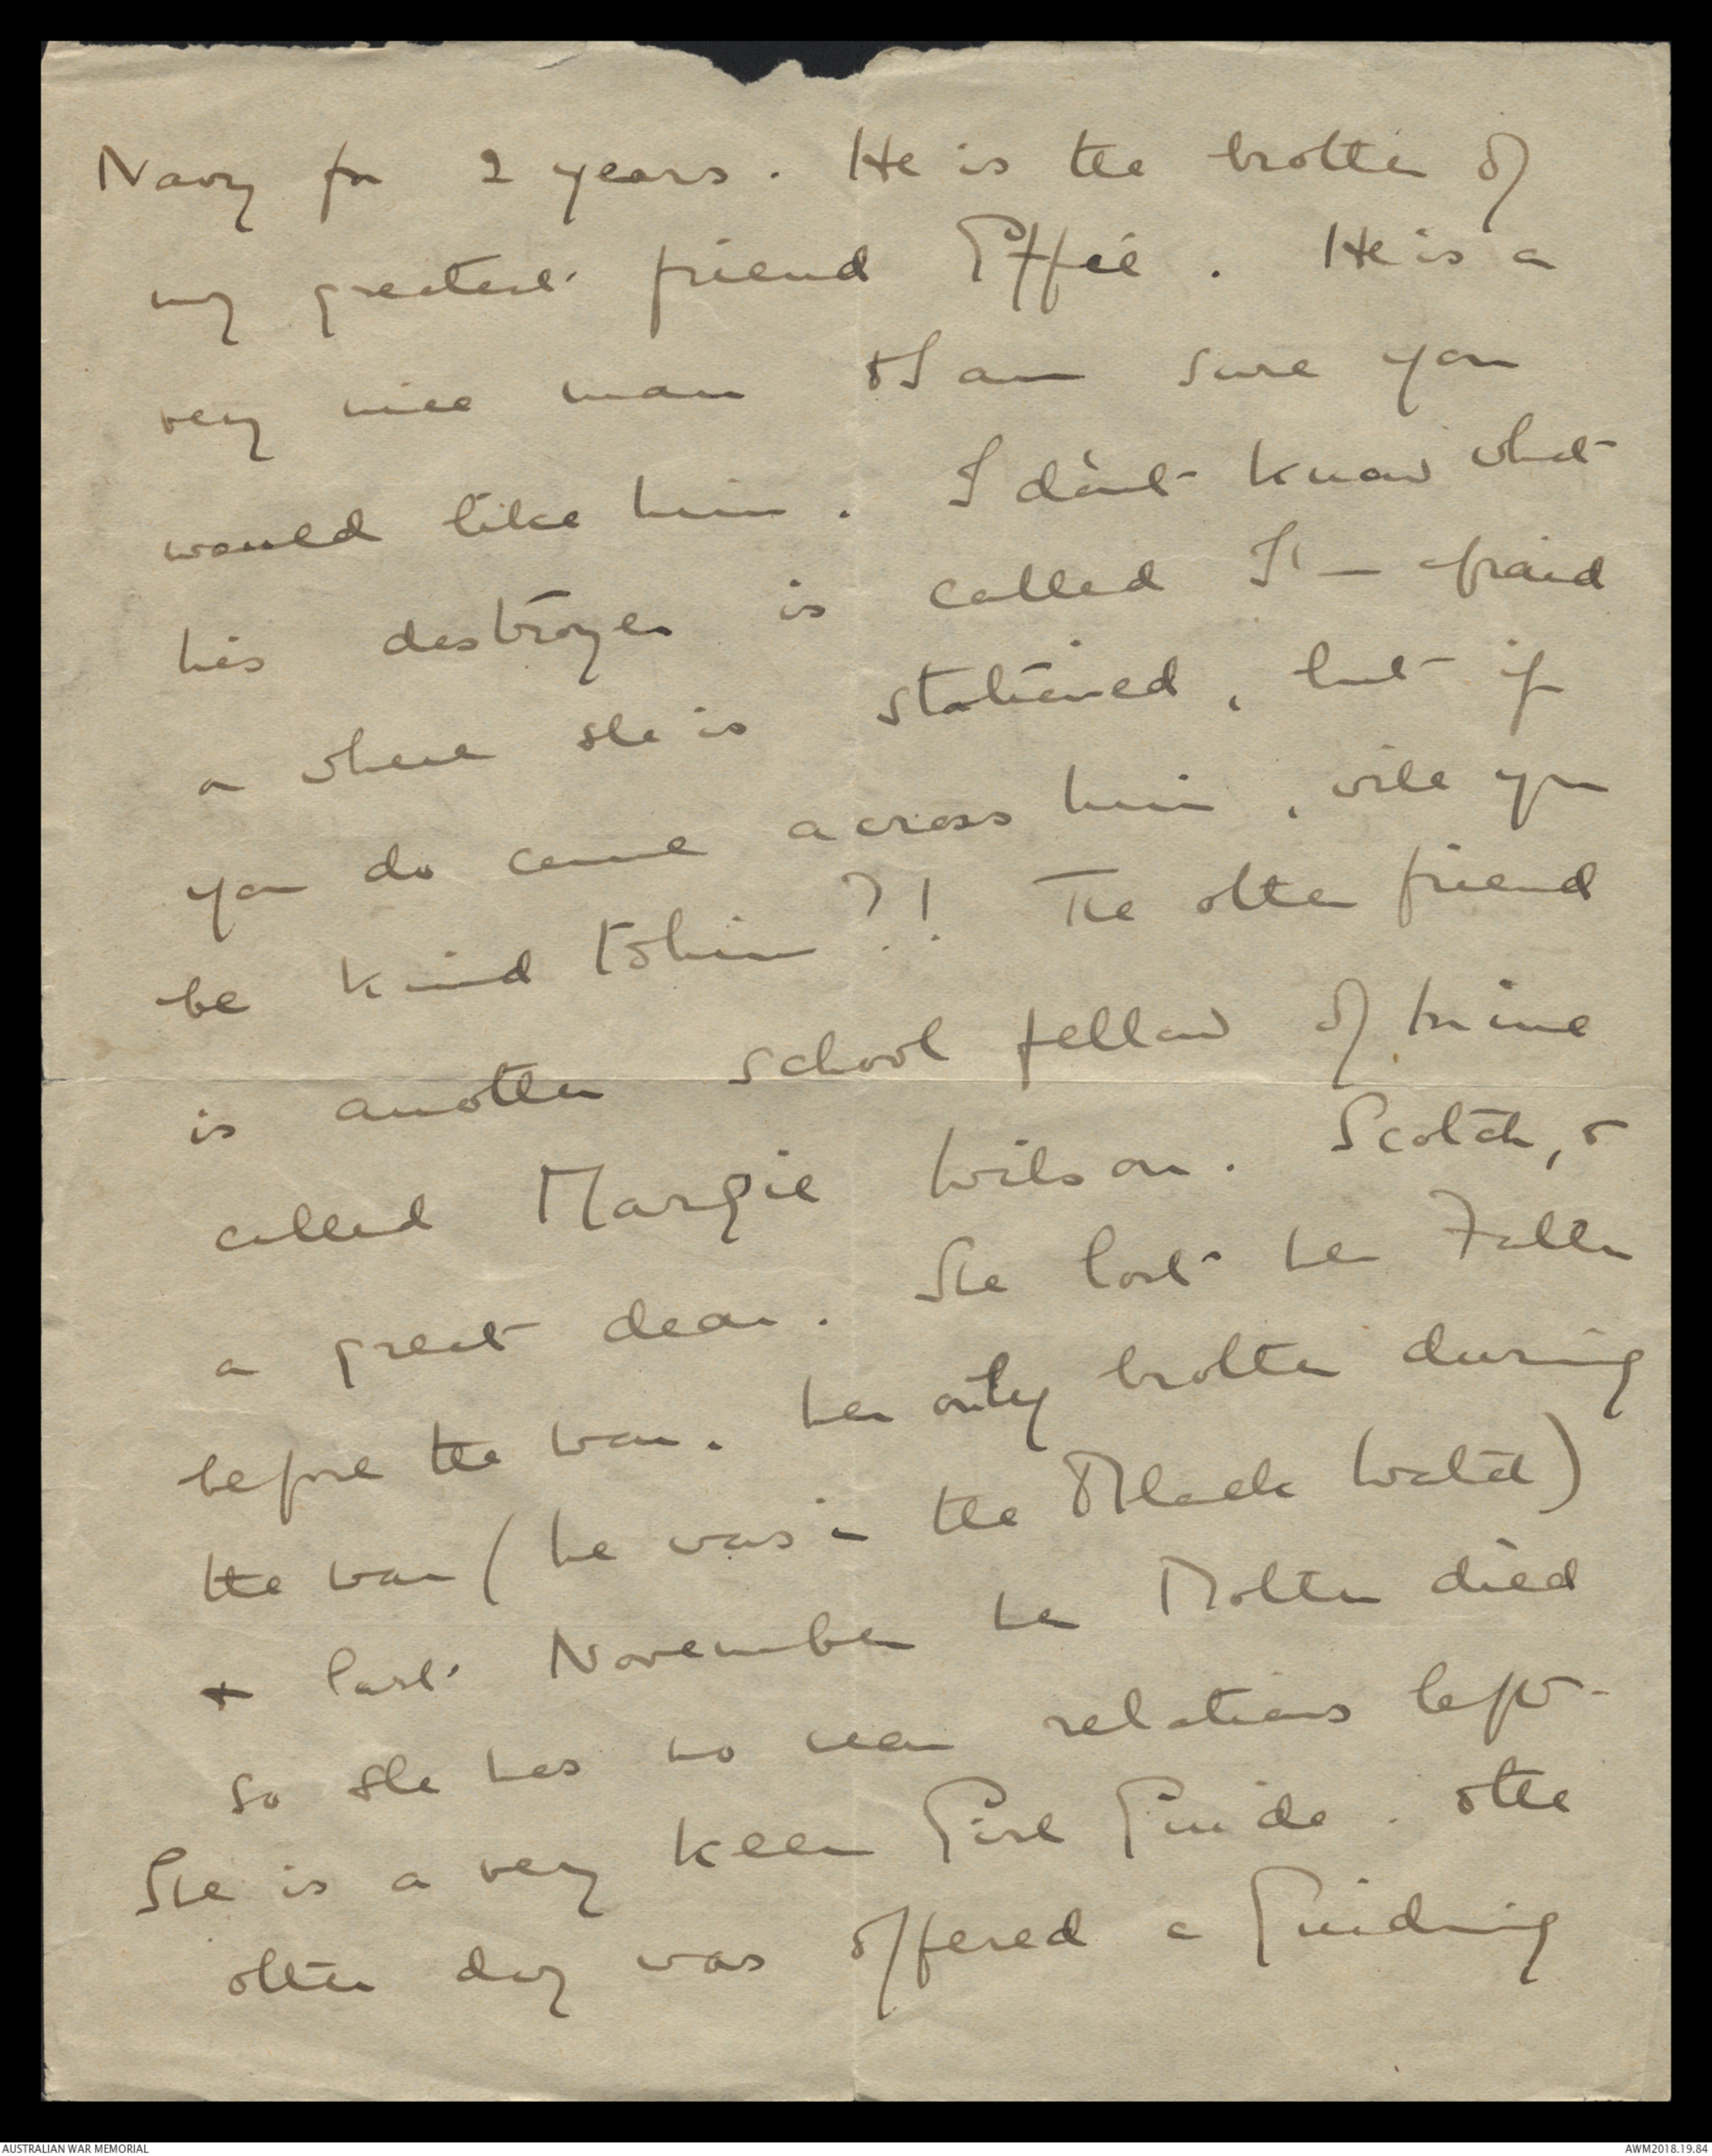 Navy for 2 years. He is the brother of
my greatest friend Effie. He is a
very nice man & I am sure you
would like him. I don't know what
his destroyer is called I'm afraid
or where she is stationed, but if
you do come across him, will you
be kind to him?! The other friend
is another school fellow of mine
called Margie Wilson. Scotch, &
a great dear. She lost her Father
before the war, her only brother during
the war (he was in the Black Watch)
& last November her Mother died
so she has no near relations left.
She is a very keen Girl Guide. & the
other day was offered a Guiding
AUSTRALIAN WAR MEMORIAL
AWM2018.19.84